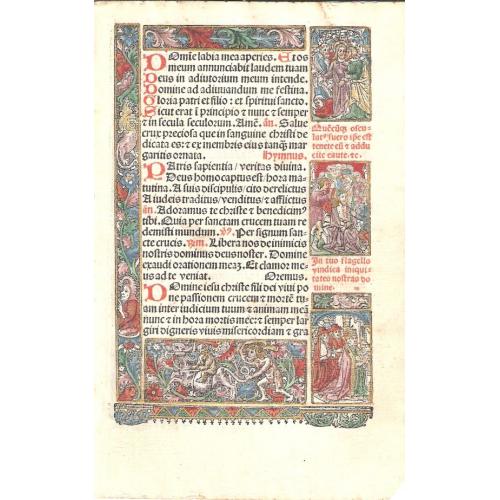 Domine labia mea aperies. Et os
meum annunciabit laudem tuam
Deus in adiutorium meum intende.
Domine ad adiuuandum me festina.
Gloria patri et filio : et spiritui sancto.
Sicut erat ī principio ⁊ nunc ⁊ semper
⁊ in secula seculorum. Amē. añ. Salue
crux preciosa que in sanguine christi de
dicata es: ⁊ ex membris eius tanq̄ mar
garitis ornata. Hymnus.
Patris sapientia / veritas diuina.
Deus homo captus est / hora ma
tutina. A suis discipulis / cito derelictus
A iudeis traditus / venditus / ⁊ afflictus
añ. Adoramus te christe ⁊ benedicimꝰ
tibi. Quia per sanctam crucem tuam re
demisti mundum. Per signum san-
cte crucis. Libera nos de inimicis
nostris dominus deus noster. Domine
exaudi orationem meaz. Et clamor me-
us ad te veniat. Oremus.
Domine iesu christe fili dei viui po
ne passionem crucem ⁊ mortē tu
am inter iudicium tuum ⁊ animam meā
nunc ⁊ in hora mortis mee: ⁊ semper lar
giri digneris viuis misericordiam ⁊ gra
Quēcūq̄ oscu-
latꝰ fuero ipse est
tenete eū ⁊ addu
cite caute. ⁊c.
In tuo flagello
vindica iniqui-
tates nostras do
mine.